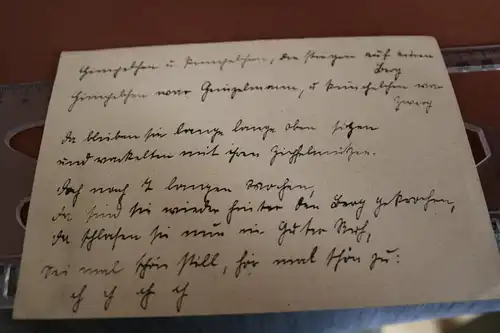 Himpelchen u Pimpelchen, die stiegen auf einen
Berg
Himpelchen war Heinzelmann, u Pimpelchen war
Zwerg
da bleiben sie lange lange oben sitzen
und wackelten mit ihren Zipfelmützen.
Doch nach 7 langen Wochen,
da sind sie wieder hinter den Berg gekrochen,
da schlafen sie nun in guter Ruh,
sei mal schön still, hör mal schön zu:
ch ch ch ch